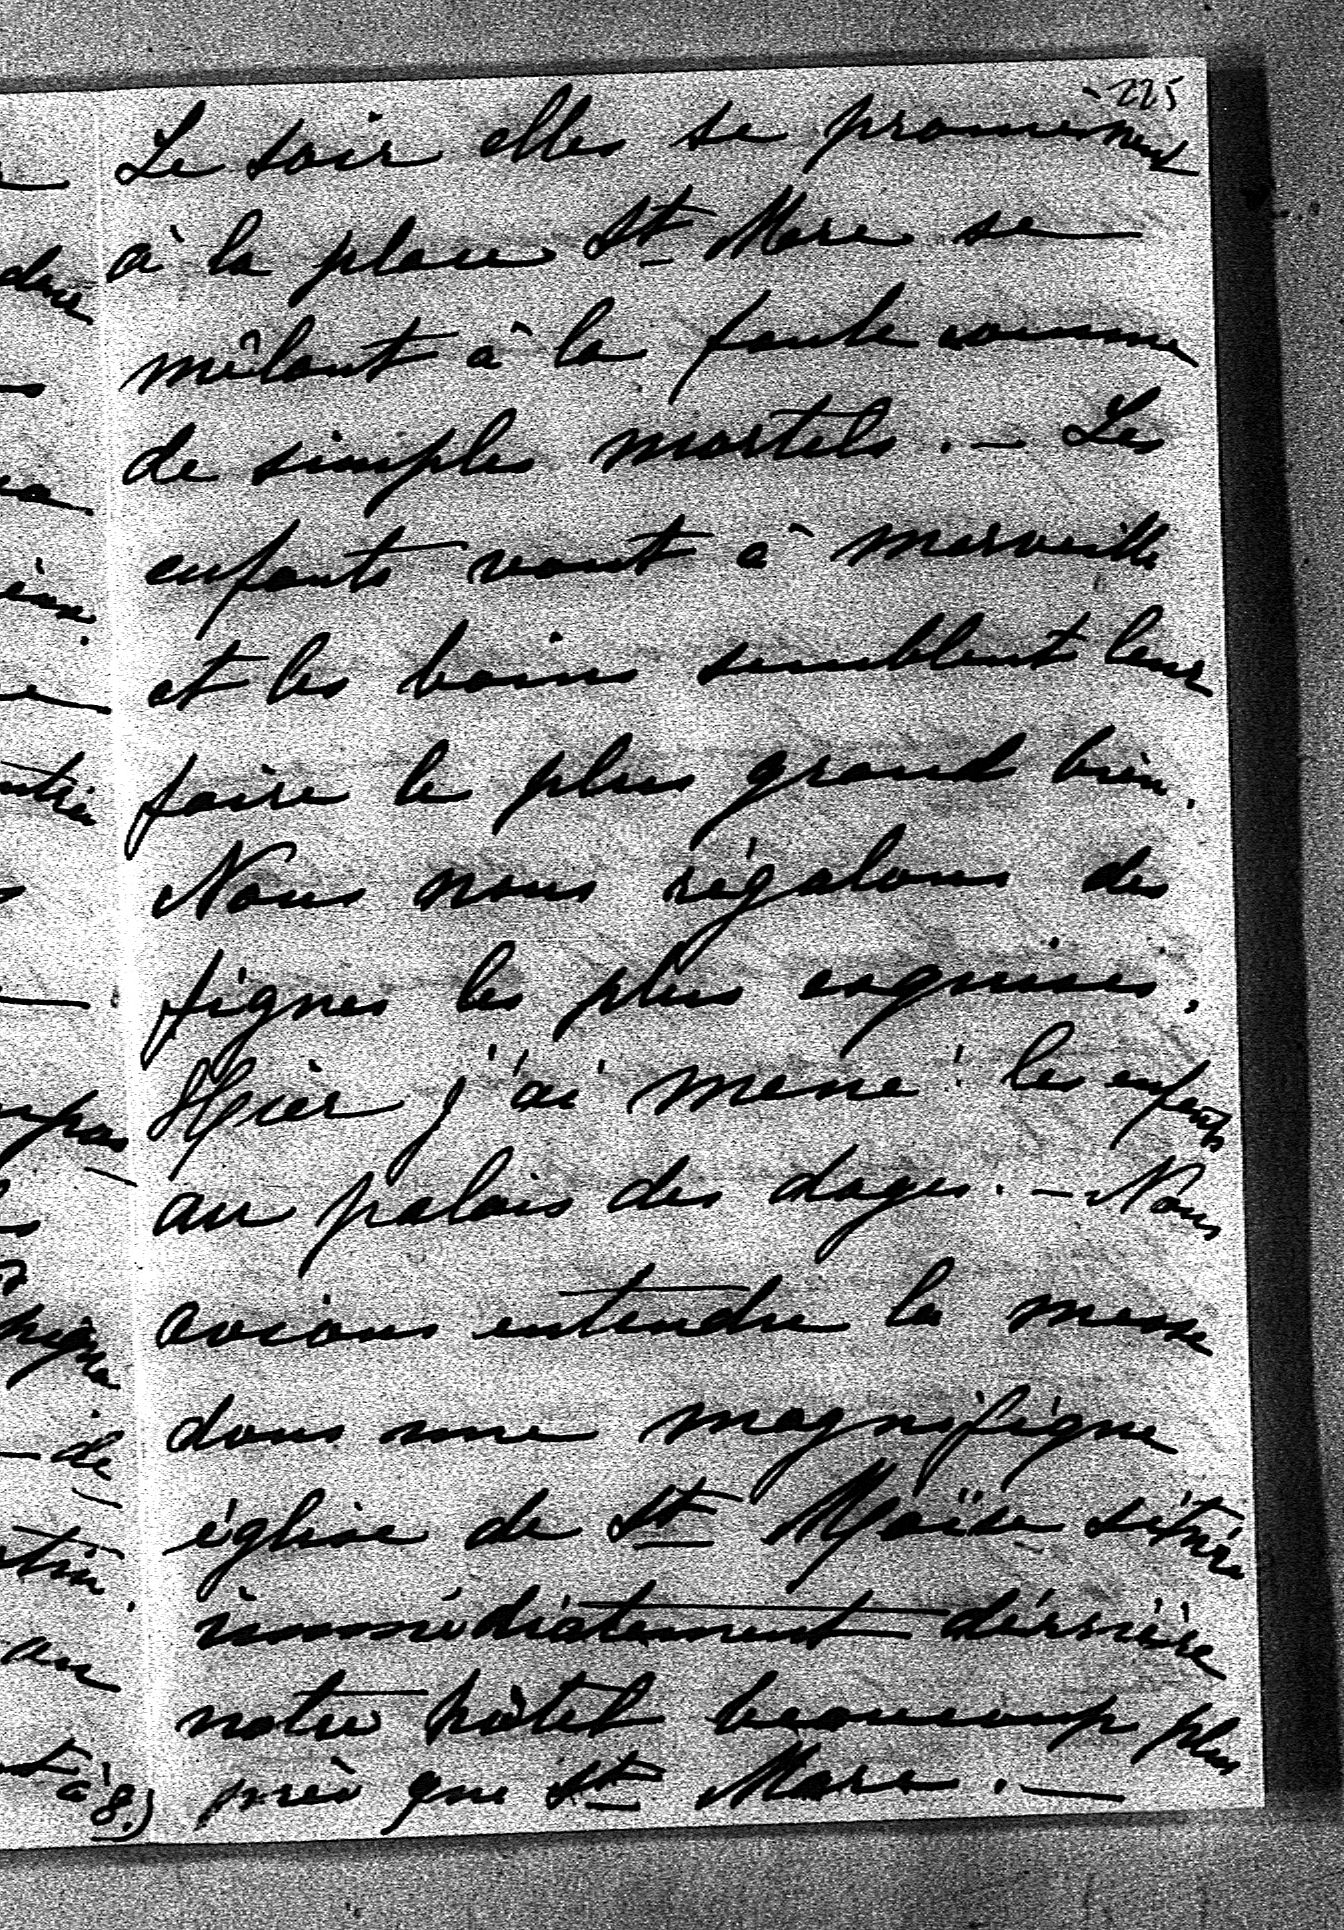 225
Le soir elles se promenent
à la place St Marc se
mêlant à la foule comme
de simples mortels. — Les
enfants vont à merveille
et les bains semblent leur
faire le plus grand bien.
Nous nous régalons des
figues les plus exquises.
Hier j'ai mené les enfants
au palais des doges. — Nous
avions entendu la messe
dans une magnifique
église de St Moïse située
immédiatement dérrière
notre hôtel beaucoup plus
près que St Marc. —
à 8.)